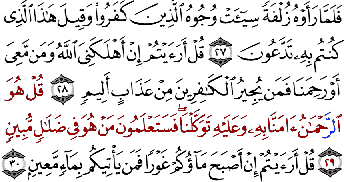 فَلَمَّا رَأَوْهُ زُلْفَةً سِيٓـَٔتْ وُجُوهُ ٱلَّذِينَ كَفَرُوا۟ وَقِيلَ هَٰذَا ٱلَّذِى
كُنتُم بِهِۦ تَدَّعُونَ ﴿٢٧﴾ قُلْ أَرَءَيْتُمْ إِنْ أَهْلَكَنِىَ ٱللَّهُ وَمَن مَّعِىَ
أَوْ رَحِمَنَا فَمَن يُجِيرُ ٱلْكَٰفِرِينَ مِنْ عَذَابٍ أَلِيمٍ ﴿٢٨﴾ قُلْ هُوَ
ٱلرَّحْمَٰنُ ءَامَنَّا بِهِۦ وَعَلَيْهِ تَوَكَّلْنَا ۖ فَسَتَعْلَمُونَ مَنْ هُوَ فِى ضَلَٰلٍ مُّبِينٍ
﴿٢٩﴾ قُلْ أَرَءَيْتُمْ إِنْ أَصْبَحَ مَآؤُكُمْ غَوْرًا فَمَن يَأْتِيكُم بِمَآءٍ مَّعِينٍۭ ﴿٣٠﴾